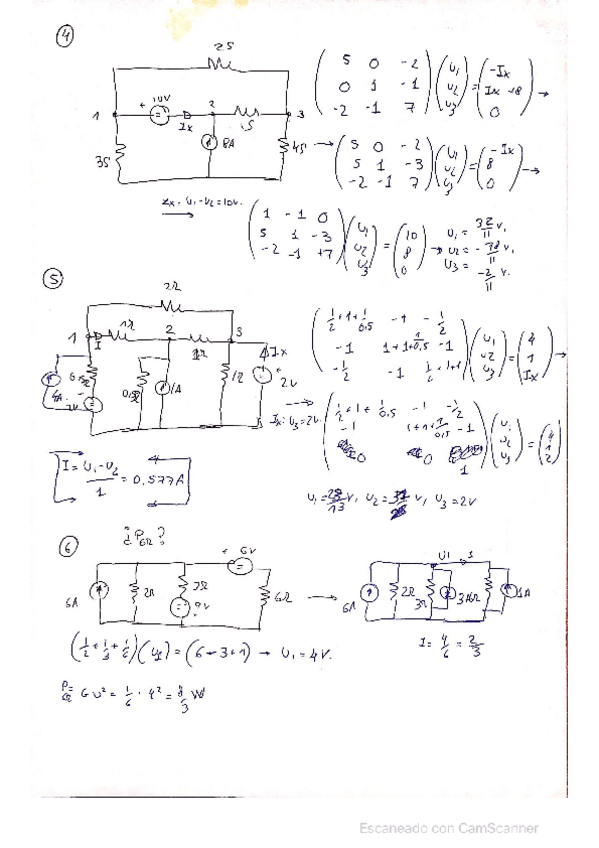 4
2S
10V
+
1
2
3
Ix
8A
3S
4S
5 0 -2
0 1 -1
-2 -1 7
U1
U2
U3
=
-Ix
Ix+8
0
→
→
5 0 -2
5 1 -3
-2 -1 7
U1
U2
U3
=
-Ix
8
0
→
U1-U2=10V.
→
1 -1 0
5 1 -3
-2 -1 +7
U1
U2
U3
=
10
8
0
→
U2 = -
U3 =
5
2Ω
1
1Ω
2
3
I
1A
1Ω
Ix
2V
1/2+1+1/0,5 -1 -1/2
-1 1+1+1/0,5 -1
-1/2 -1 1/2+1+1
U1
U2
U3
=
4
1
Ix
→
→
Ix: U3=2V.
1/2+1+1/0,5 -1 -1/2
-1 1+1+1/0,5 -1
0 0 1
U1
U2
U3
=
4
1
2
I = U1-U2/1 = 0,577A
V, U3=2V
6
¿P6Ω?
+ 6V
6A
2Ω
3Ω
9V
6Ω
→
U1
6A
2Ω
3Ω
1A
(1/2+1/3+1/6)(U1)=(6-3+1) → U1=4V.
I= 4/6 = 2/3
P6Ω= G U²= 1/6 · 4²= 8/3 W
Escaneado con CamScanner